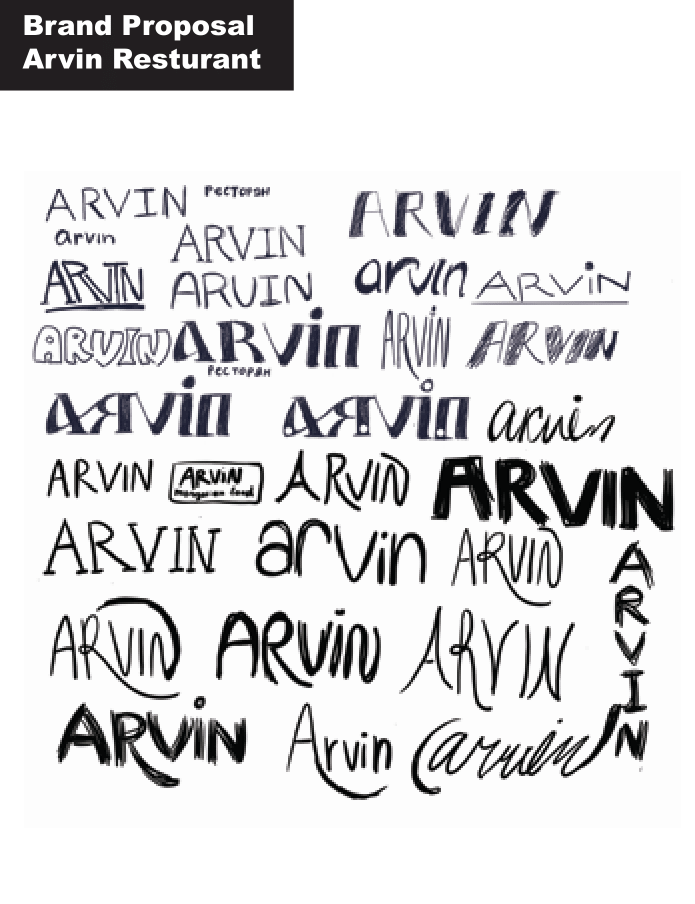 Brand Proposal
Arvin Resturant
ARVIN РЕСТОРАН
ARVIN
arvin ARVIN
ARVIN ARVIN arvin ARViN
ARVIN ARVin ARViN ARVIN
РЕСТОРАН
ARvin ARvin arvin
ARVIN ARVIN ARVIN ARVIN
ARVIN arvin ARVIN
ARVIN ARViN ARVIN
ARVIN
ARViN Arvin arvin